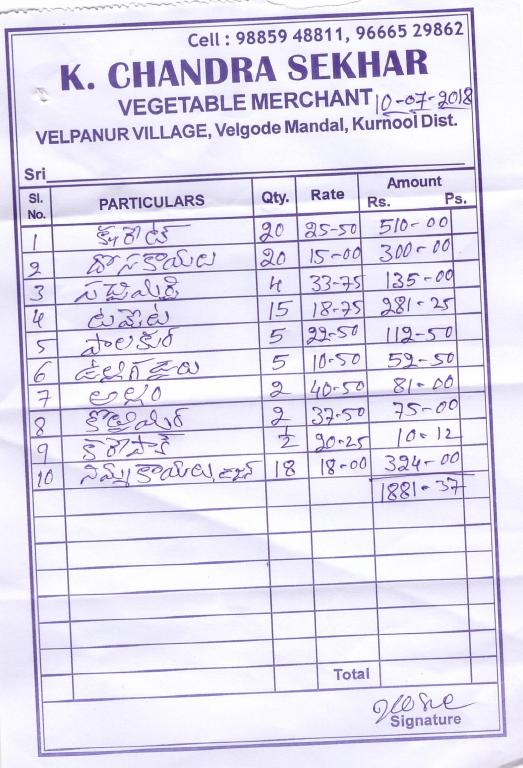 Cell : 98859 48811, 96665 29862
K. CHANDRA SEKHAR
VEGETABLE MERCHANT 10-07-2018
VELPANUR VILLAGE, Velgode Mandal, Kurnool Dist.
Sri
Sl. No. PARTICULARS Qty. Rate Amount Rs. Ps.
1 క్యారెట్ 20 25-50 510-00
2 దోసకాయలు 20 15-00 300-00
3 పచ్చిమిర్చి 4 33-75 135-00
4 టమోట 15 18-75 281-25
5 పాలకూర 5 22-50 112-50
6 ఉల్లిగడ్డలు 5 10-50 52-50
7 అల్లం 2 40-50 81-00
8 కొత్తిమీర 2 37-50 75-00
9 కరేపాక్ 1/2 20-25 10-12
10 నిమ్మకాయలు 18 18-00 324-00
1881-37
Total
Signature